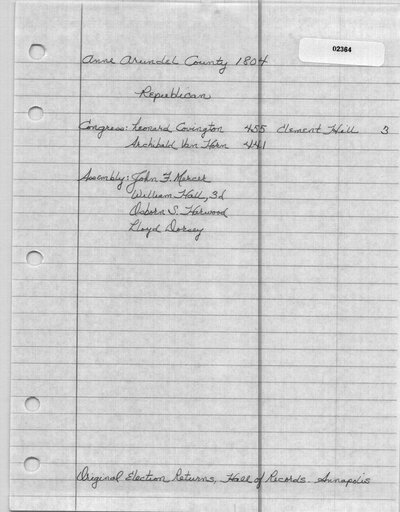 02364
Anne Arundel County 1804
Republican
Congress: Leonard Covington 455 Clement Hill 3
Archibald Van Horn 441
Assembly: John F. Mercer
William Hall, 3d
Osborn S. Harwood
Lloyd Dorsey
Original Election Returns, Hall of Records. Annapolis